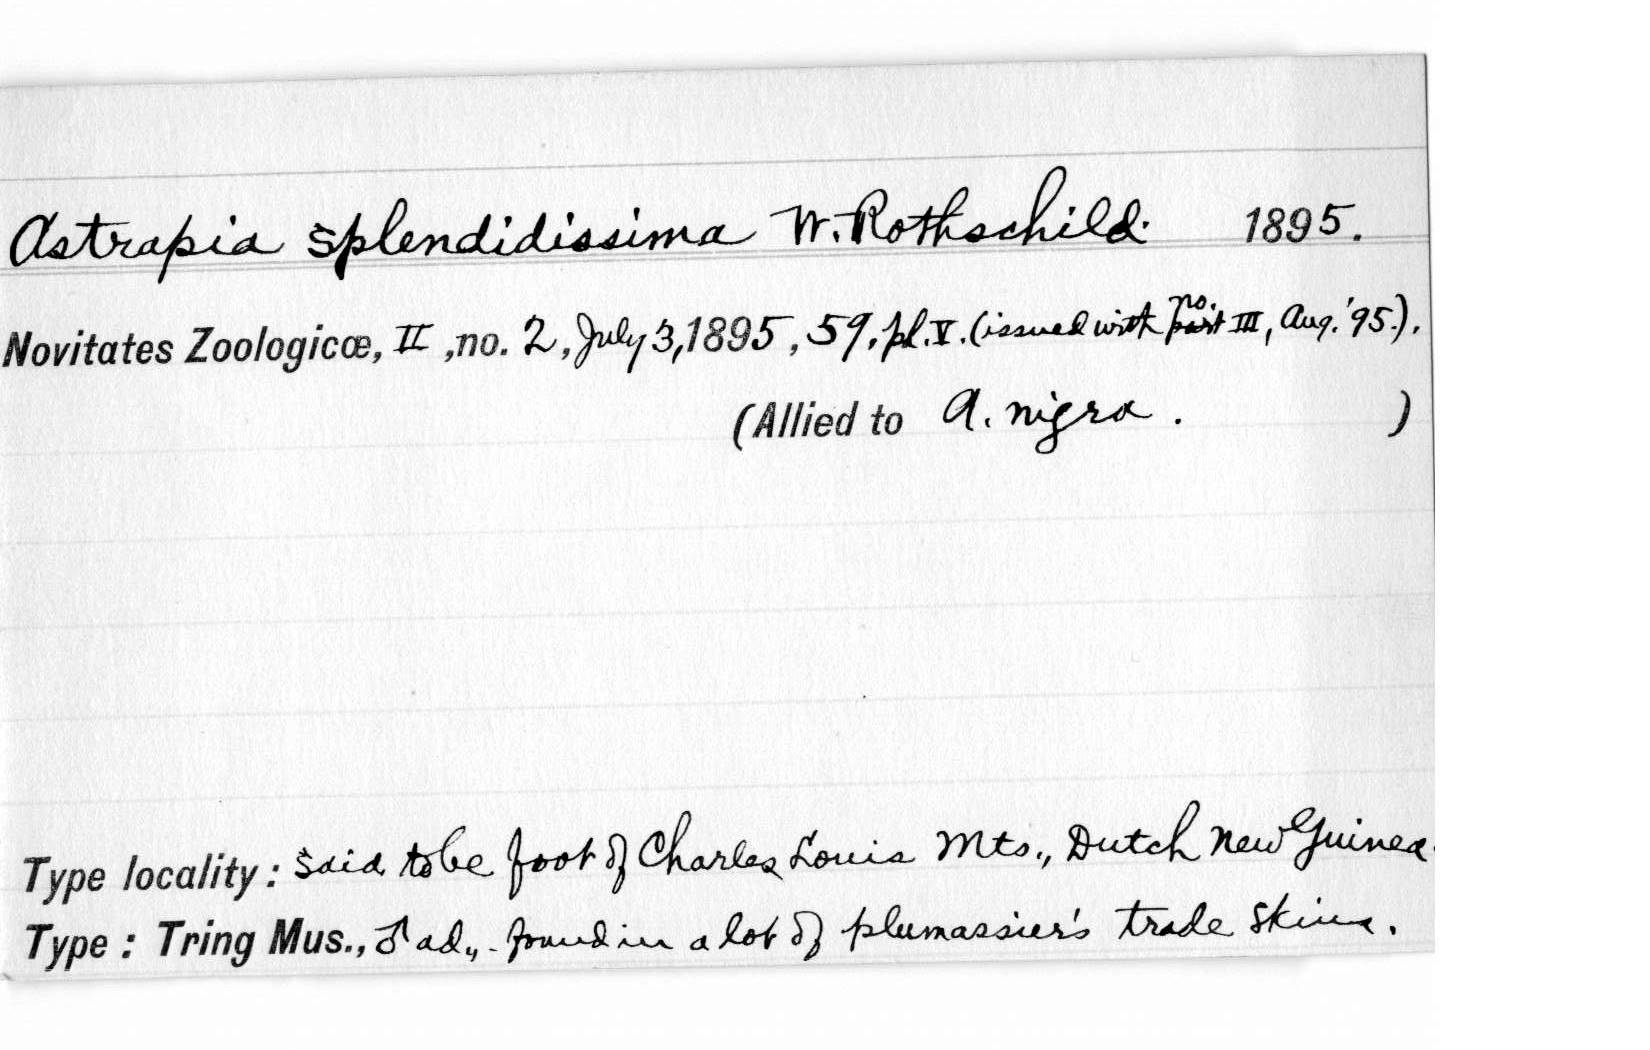 Astrapia splendidissima W. Rothschild. 1895.
Novitates Zoologicæ, II, no. 2, July 3, 1895, 59, pl. V. (issued with no. III, Aug. '95.).
(Allied to A. nigra. )
Type locality: Said to be foot of Charles Louis Mts., Dutch New Guinea.
Type: Tring Mus., ♂ ad., - found in a lot of plumassier's trade skins.